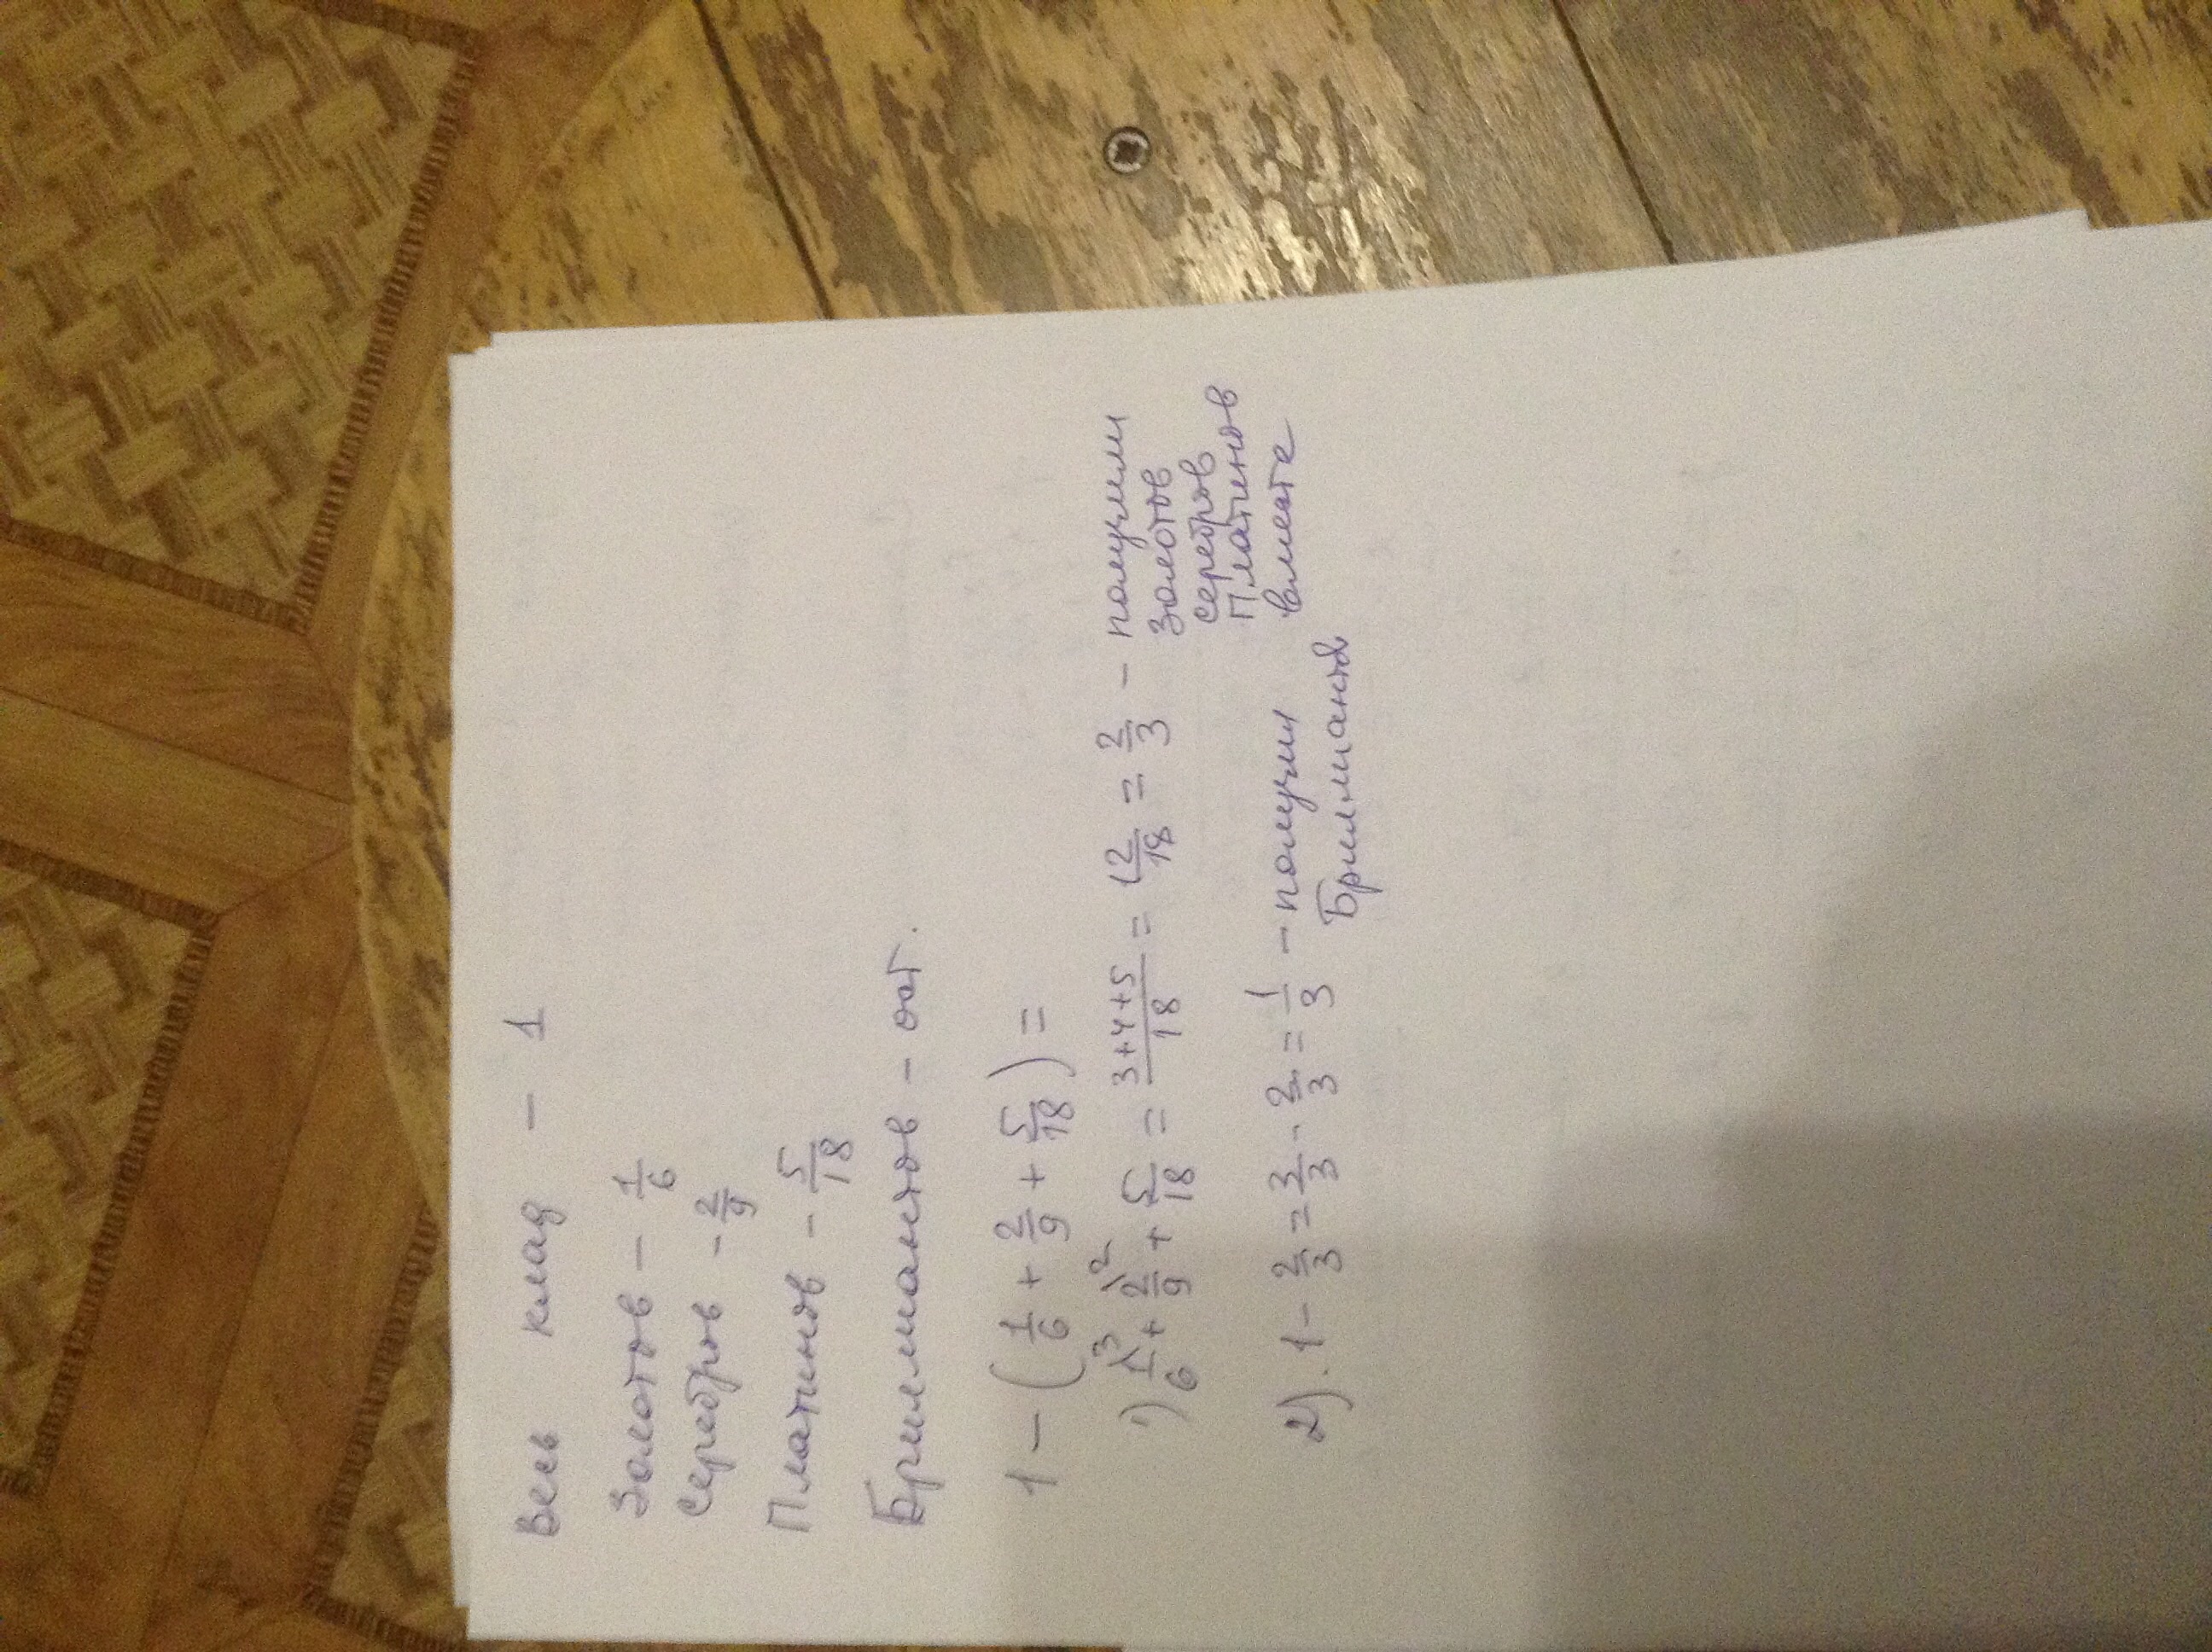 Весь клад - 1
Золотов - 1/6
Серебров - 2/9
Платинов - 5/18
Бриллиантов - ост.
1 - (1/6 + 2/9 + 5/18) =
1) 1/6\3 + 2/9\2 + 5/18 = 3+4+5/18 = 12/18 = 2/3 - получили
Золотов
Серебров
Платинов
вместе
2). 1 - 2/3 = 3/3 - 2/3 = 1/3 - получил
Бриллиантов